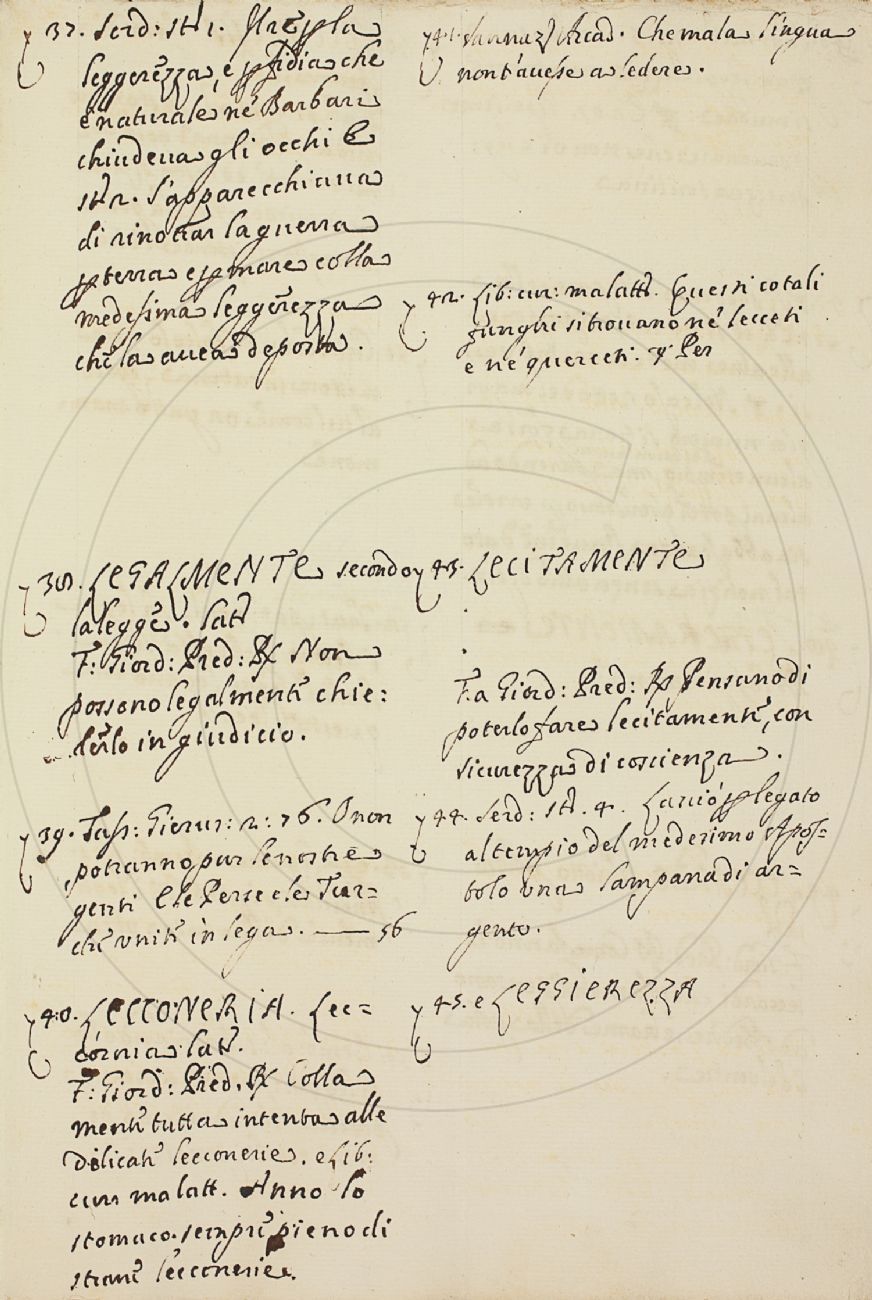 37. Serd: st: 1. Il Re p la
leggerezza, e p fidia che
è naturale ne' Barbari
chiudeva gli occhi E
st: 2. S'apparecchiava
di rinovar la guerra
p terra e p mare colla
medesima leggerezza
che la avea deposta.
38. LEGALMENTE secondo
la legge. lat
F: Giord: Pred: R Non
possono legalmente chie:
derlo in giudicio.
39. Tass: Gierus: 2: 76. O non
potranno pur le nostre
genti E le Perse e le Tur=
che unite in lega. — 56
40. LECCONERIA. Lec=
cornia lat.
F: Giord: Pred. R Colla
mente tutta intenta alle
delicate lecconerie. e Lib:
cur malatt. Anno lo
stomaco sempre pieno di
strane lecconerie.
41. Sannaz: Arcad. Che mala lingua
non t'avesse a ledere.
42. Lib: cur: malatt. Questi cotali
funghi si trovano ne' lecceti
e ne' querceti. Per
43. LECITAMENTE
F.a Giord: Pred: R Pensano di
poterlo fare lecitamente, con
sicurezza di coscienza.
44. Serd: st: 4. Lasciò p legato
al tempio del medesimo Apos=
tolo una lampana di ar=
gento.
45. e LEGGIEREZZA